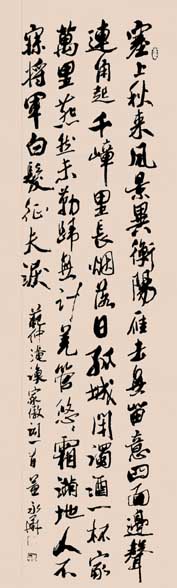 塞上秋来風景異衡陽雁去無留意四面邊聲
連角起千嶂里長烟落日孤城閉濁酒一杯家
萬里燕然未勒歸無計羌管悠悠霜滿地人不
寐將軍白髮征夫淚
范仲淹漁家傲詞一首